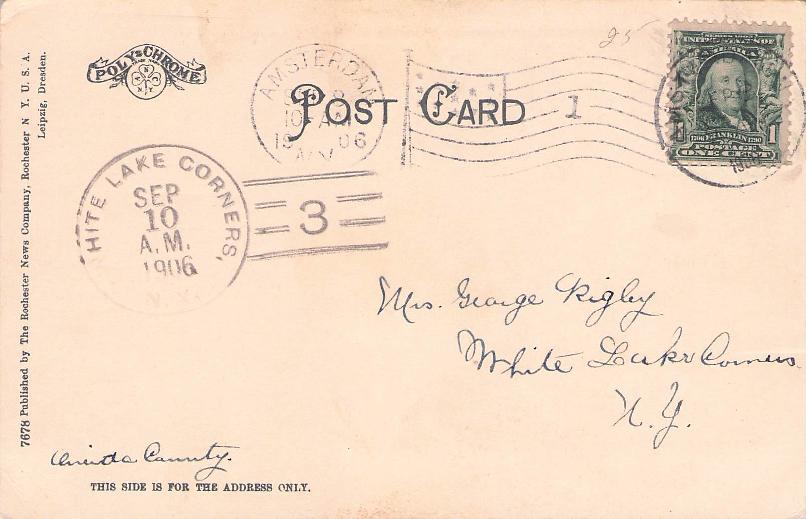 POLY-CHROME
25
AMSTERDAM
10 AM
1906
N.Y.
POST CARD
1
SERIES 1902
UNITED STATES OF
AMERICA
1 1
1706 FRANKLIN 1790
POSTAGE
ONE CENT
WHITE LAKE CORNERS,
SEP
10
A.M.
1906
N.Y.
3
Mrs. George Rigby
White Lake Corners
N.Y.
Oneida County.
THIS SIDE IS FOR THE ADDRESS ONLY.
7678 Published by The Rochester News Company, Rochester N Y. U. S. A.
Leipzig, Dresden.